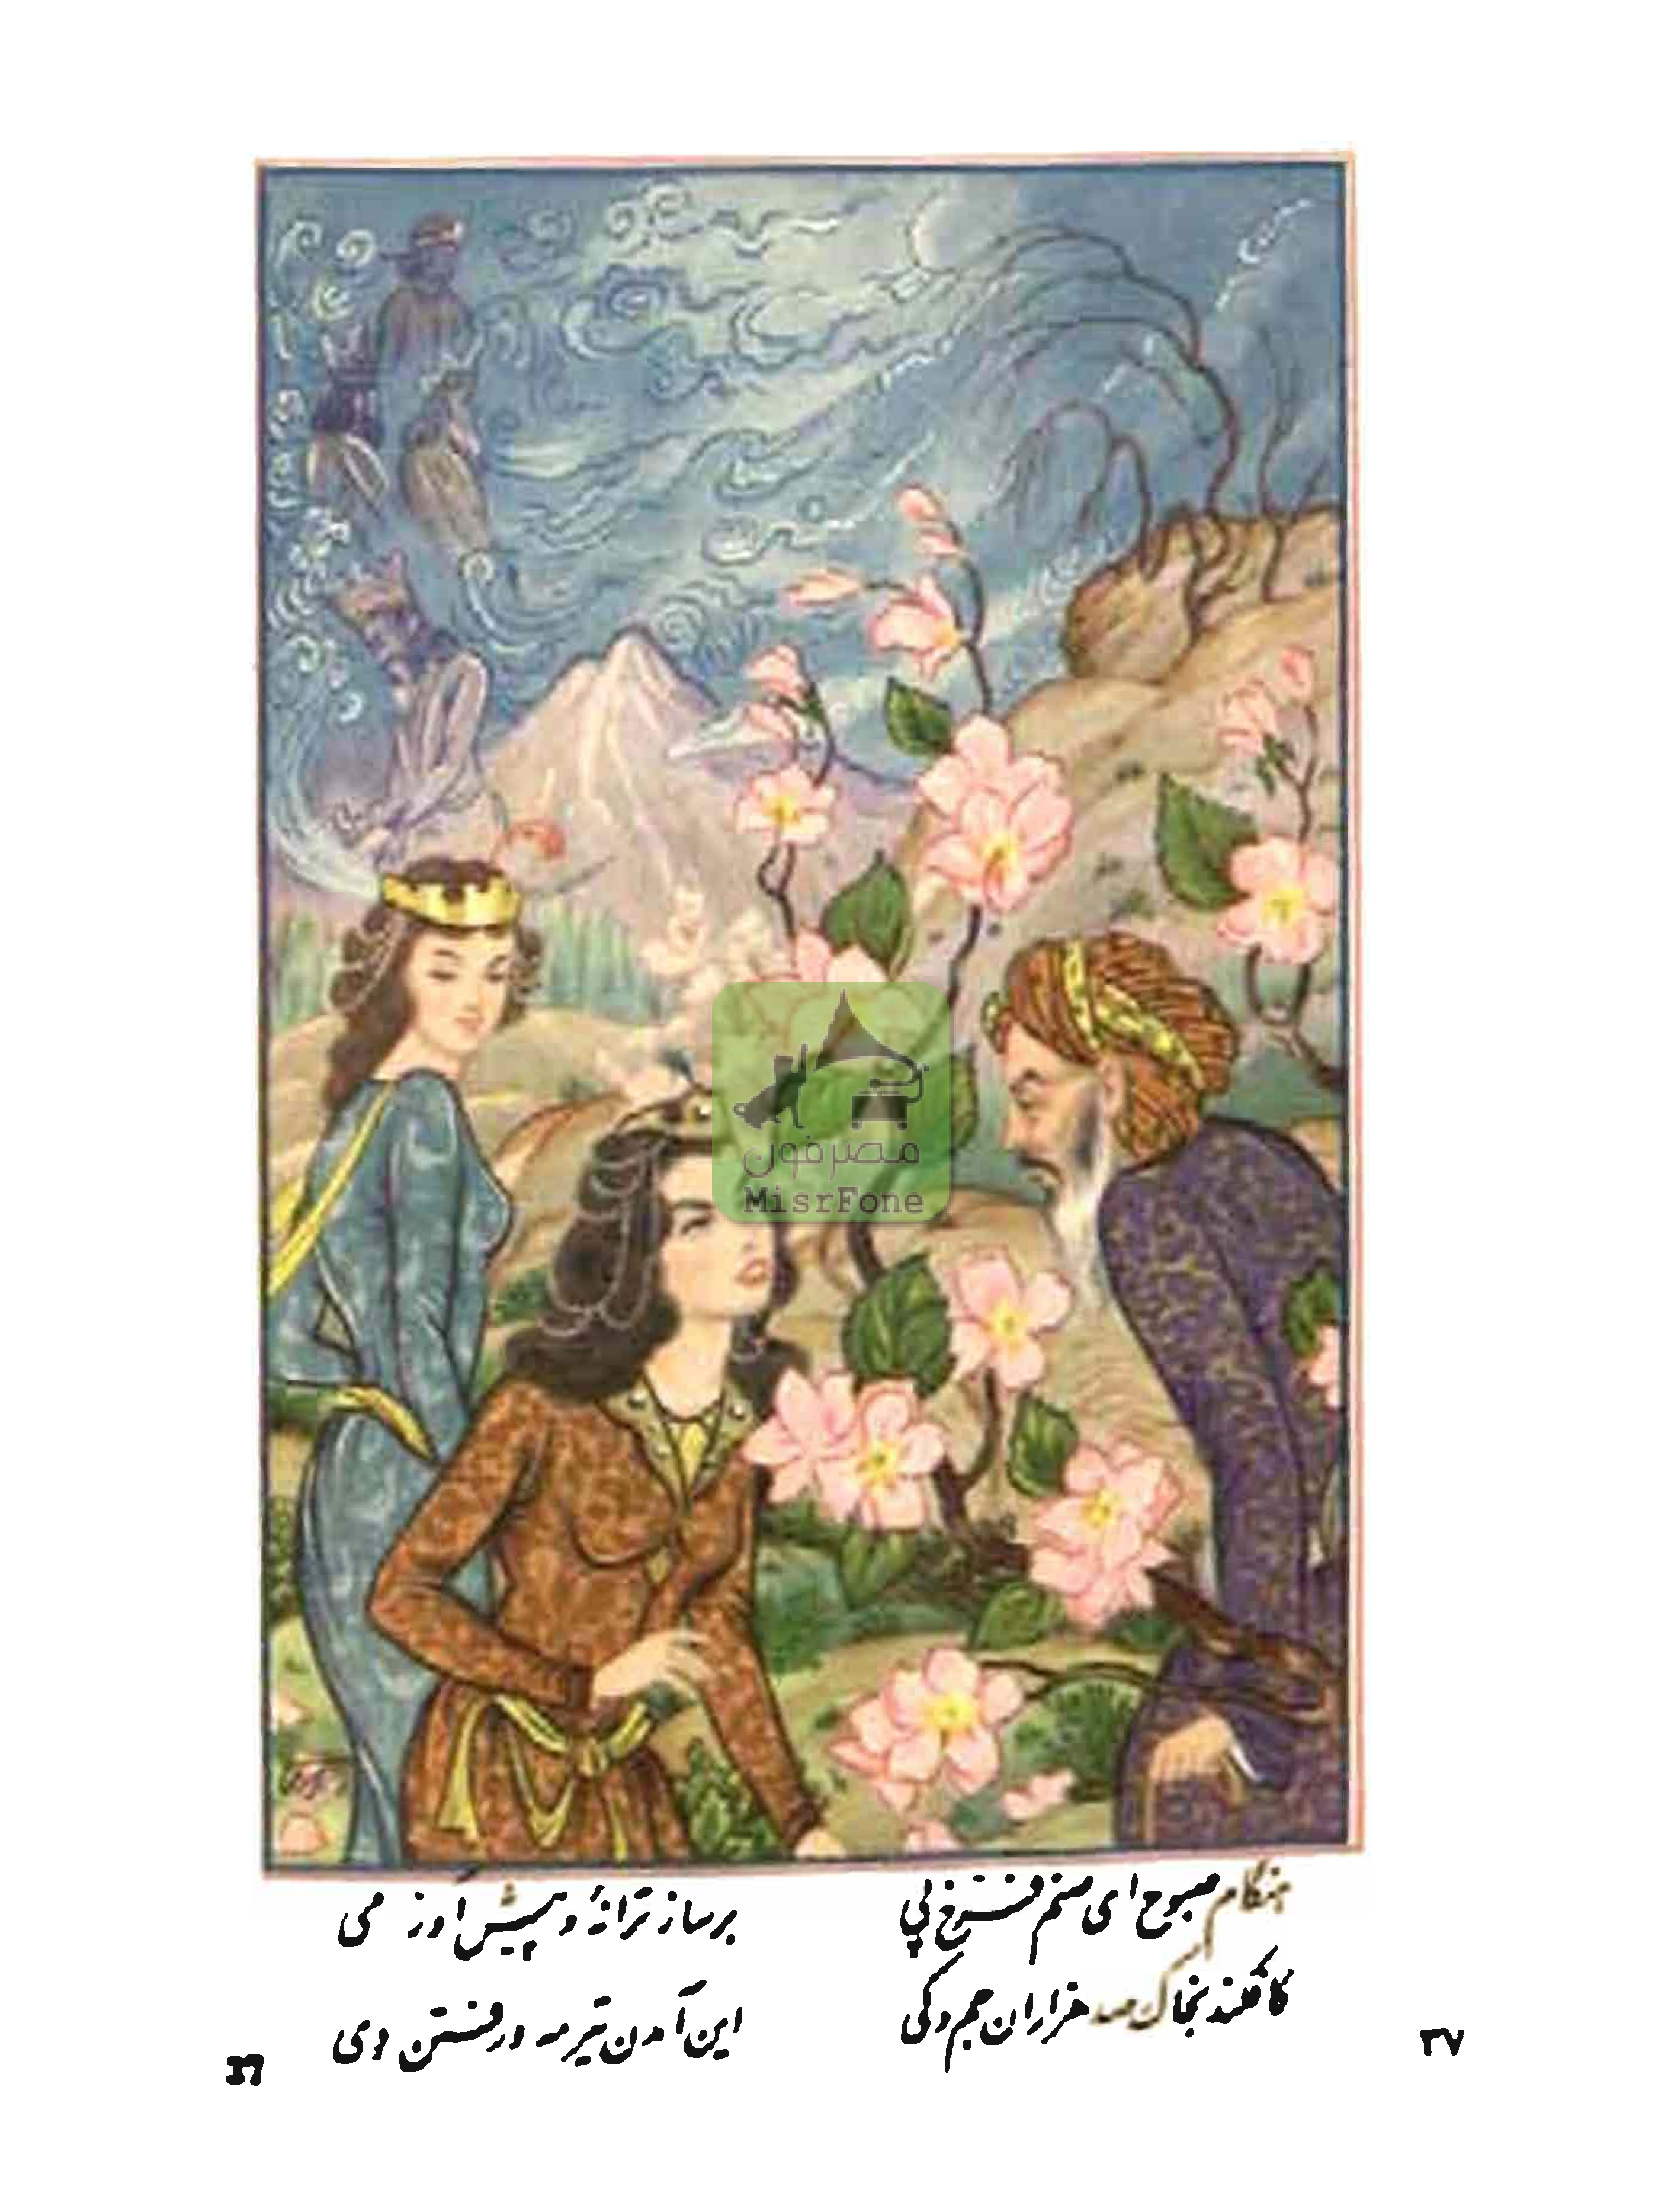 مصرفون
MisrFone
هنگام صبوح ای صنم فرخ پی
برساز ترانهٔ و پیش آور می
کافکند بخاک صد هزاران جم و کی
این آمدن تیرمه و رفتن دی
۳۷